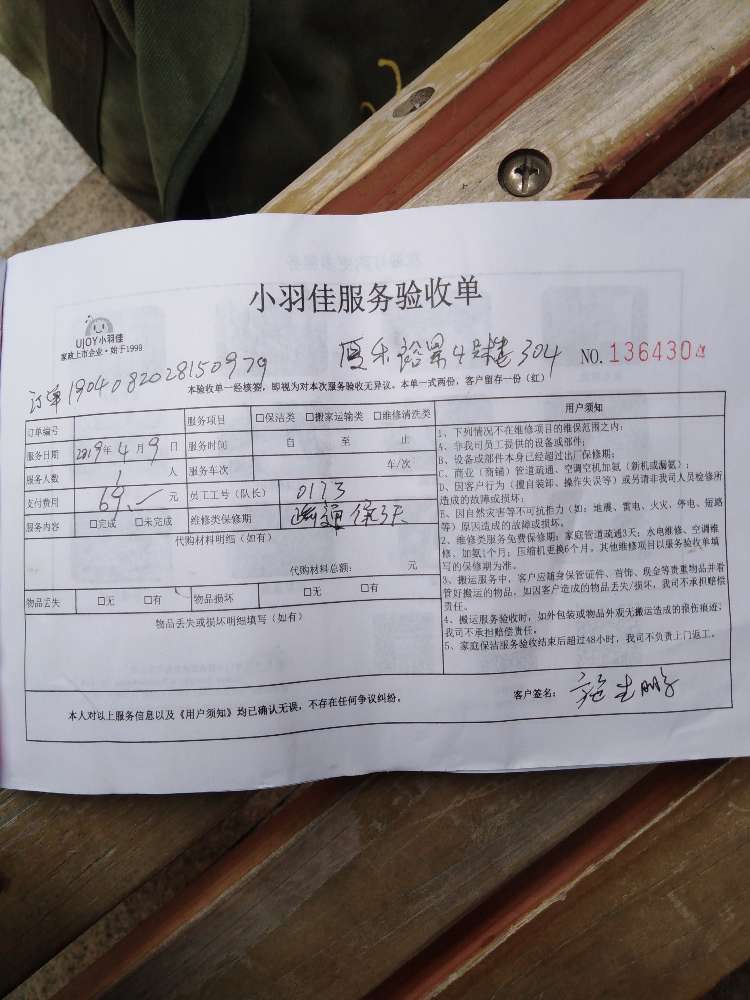 小羽佳服务验收单
UJOY小羽佳
家政上市企业·始于1998
NO.1364304
订单1904082028150979
4号楼304
本验收单一经核签，即视为对本次服务验收无异议。本单一式两份，客户留存一份（红）
订单编号
服务项目 □保洁类 □搬家运输类 □维修清洗类
服务日期 2019年4月9日 服务时间 自 至 止
服务人数 1 人 服务车次 车/次
支付费用 69.— 元 员工工号（队长） 0173
服务内容 □完成 □未完成 维修类保修期 疏通保3天
代购材料明细（如有）
代购材料总额： 元
物品丢失 □无 □有 物品损坏 □无 □有
物品丢失或损坏明细填写（如有）
用户须知
1、下列情况不在维修项目的维保范围之内：
A、非我司员工提供的设备或部件；
B、设备或部件本身已经超过出厂保修期；
C、商业（商铺）管道疏通、空调空机加氨（新机或漏氨）；
D、因客户行为（擅自装卸、操作失误等）或另请非我司人员检修所
造成的故障或损坏；
E、因自然灾害等不可抗拒力（如：地震、雷电、火灾、停电、短路
等）原因造成的故障或损坏。
2、维修类服务免费保修期：家庭管道疏通3天；水电维修、空调维
修、加氨1个月；压缩机更换6个月，其他维修项目以服务验收单填
写的保修期为准。
3、搬运服务中，客户应随身保管证件、首饰、现金等贵重物品并看
管好搬运的物品，如因客户造成的物品丢失/损坏，我司不承担赔偿
责任。
4、搬运服务验收时，如外包装或物品外观无搬运造成的损伤痕迹，
我司不承担赔偿责任。
5、家庭保洁服务验收结束后超过48小时，我司不负责上门返工。
本人对以上服务信息以及《用户须知》均已确认无误，不存在任何争议纠纷。
客户签名：